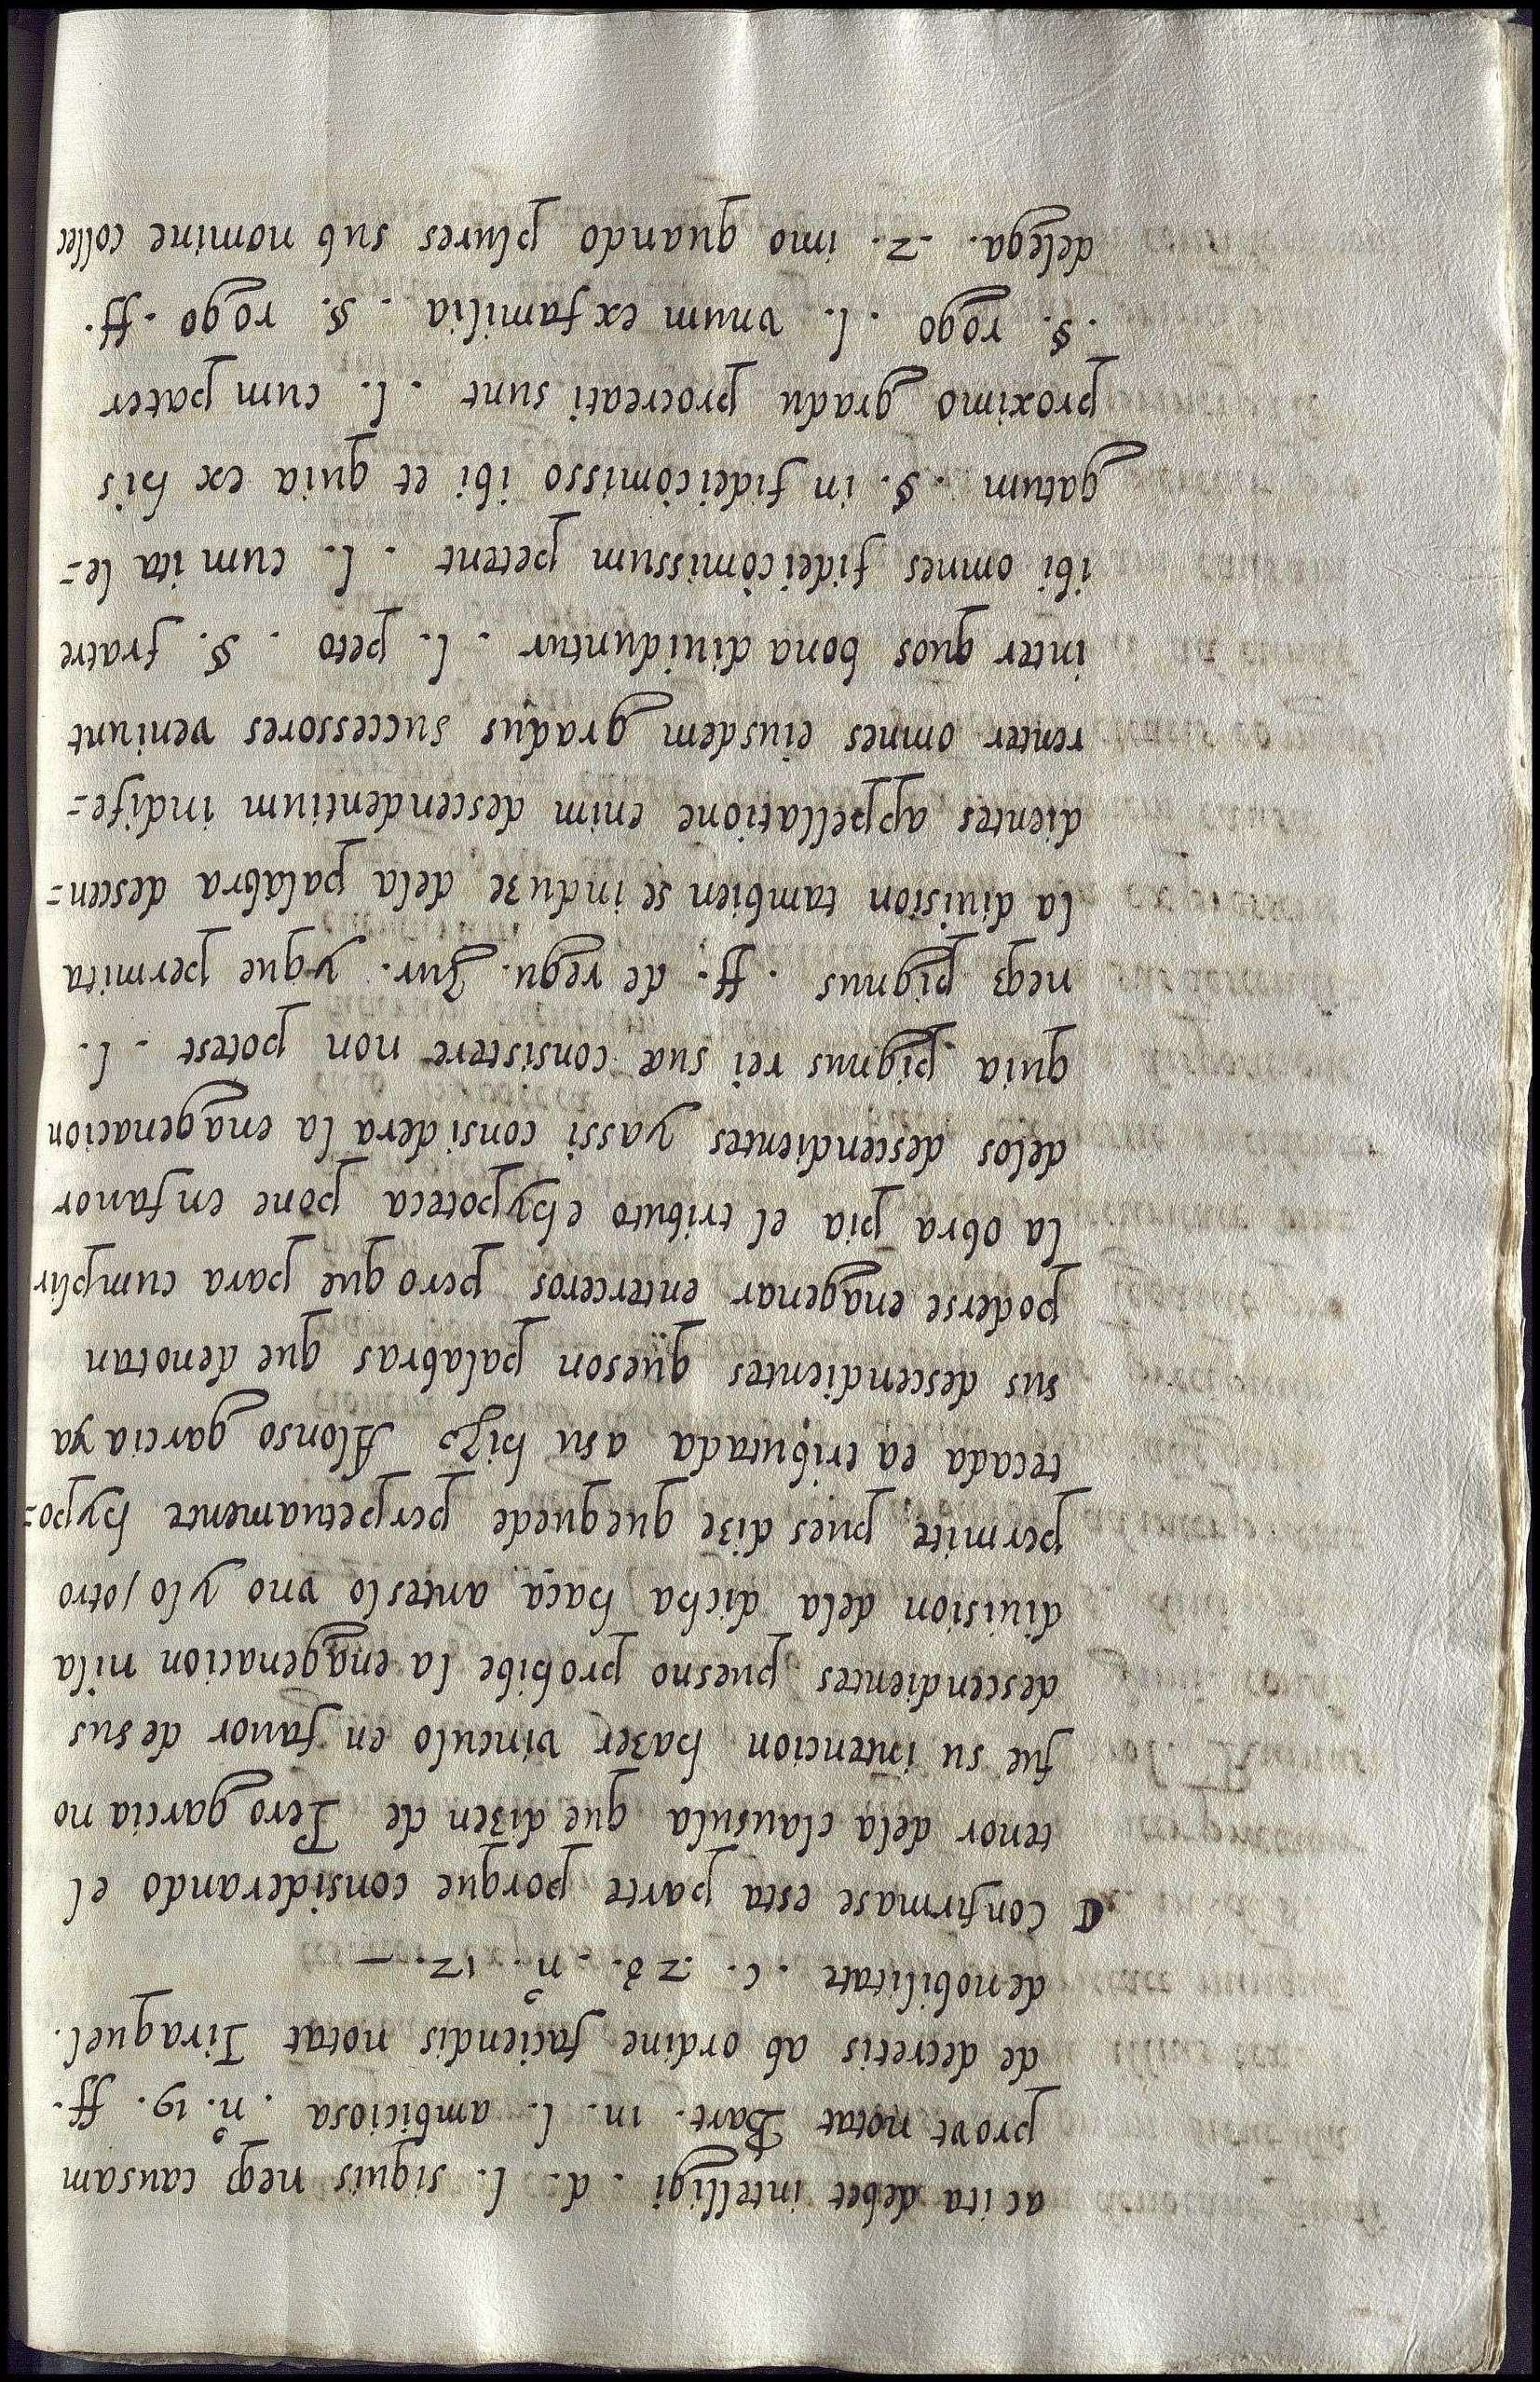 ac ita debet intelligi . d. l. siquis neqꝫ causam
provt notat Bart. in. l. ambiciosa . nº. 19. ff.
de decretis ab ordine faciendis notat Tiraquel.
de nobilitate . c. 20. nº. 12. —
Confirmase esta parte porque considerando el
tenor dela clausula que dizen de Pero garcia no
fue su intencion hazer vinculo en fauor de sus
descendientes pues no prohibe la enagenacion nila
diuision dela dicha haça antes lo vno y lo otro
permite, pues dize que quede perpetuamente hypo=
tecada ea tributada asu hijo Alonso garcia ya
sus descendientes que son palabras que denotan
poderse enagenar enterceros pero que para cumplir
la obra pia el tributo ehypoteca pone enfauor
delos descendientes yassi considera la enagenacion
quia pignus rei suæ consistere non potest . l.
neqꝫ pignus . ff. de regu. Jur. y que permita
la diuision tambien se induze dela palabra descen=
dientes appellatione enim descendentium indife=
renter omnes eiusdem gradus successores veniunt
inter quos bona diuiduntur . l. peto . §. fratre
ibi omnes fideicomissum petent . l. cum ita le=
gatum . §. in fideicomisso ibi et quia ex his
proximo gradu procreati sunt . l. cum pater
. §. rogo . l. vnum ex familia . §. rogo . ff.
delega. 2. imo quando plures sub nomine collec